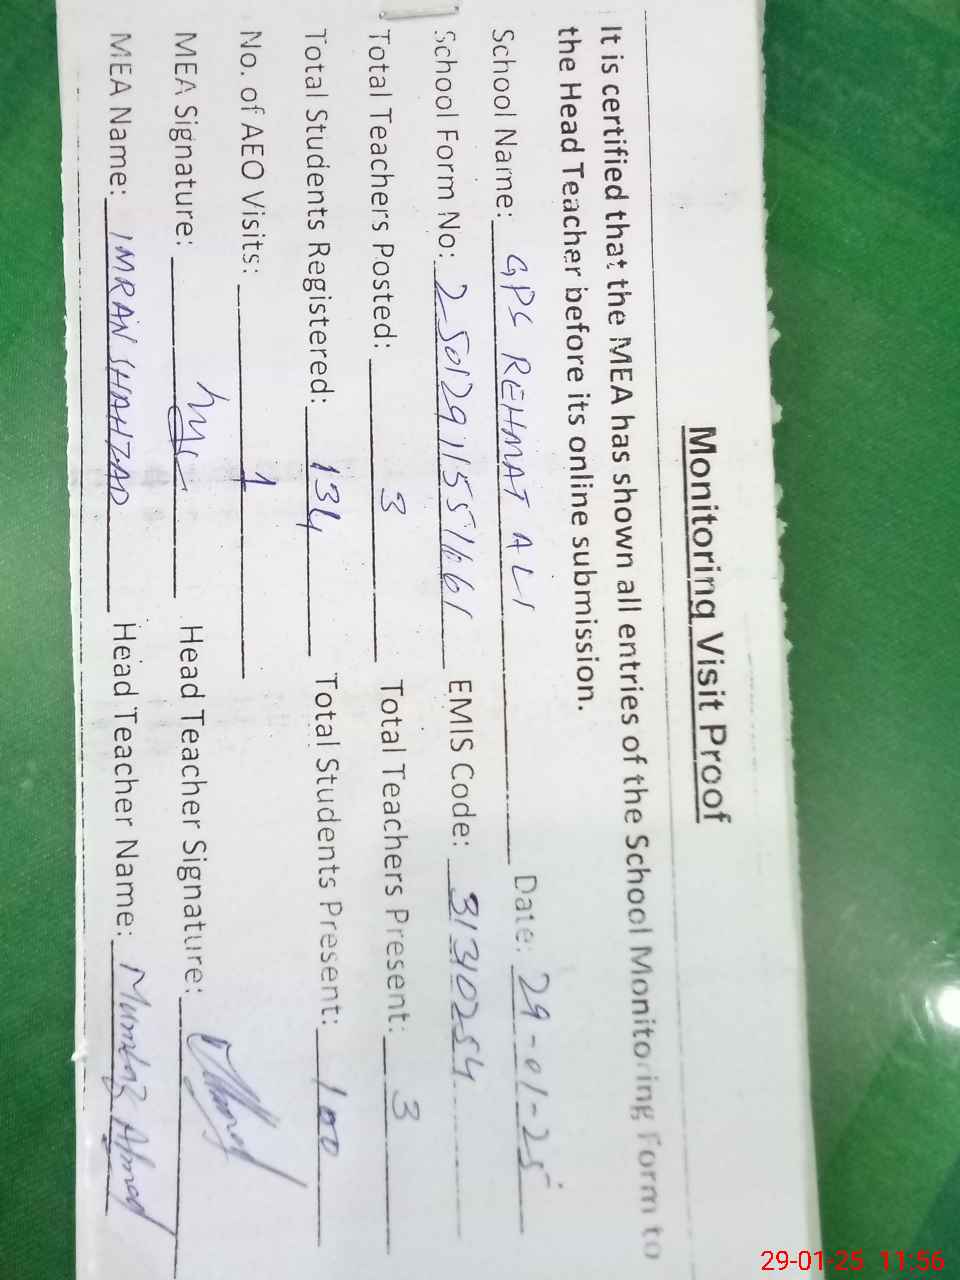 Monitoring Visit Proof
It is certified that the MEA has shown all entries of the School Monitoring Form to
the Head Teacher before its online submission.
School Name: GPS REHMAT ALI Date: 29-01-25
School Form No: 25012911551661 EMIS Code: 31310254
Total Teachers Posted: 3 Total Teachers Present: 3
Total Students Registered: 134 Total Students Present: 100
No. of AEO Visits: 1
MEA Signature: Head Teacher Signature:
MEA Name: IMRAN SHAHZAD Head Teacher Name: Mumtaz Ahmad
29-01-25 11:56